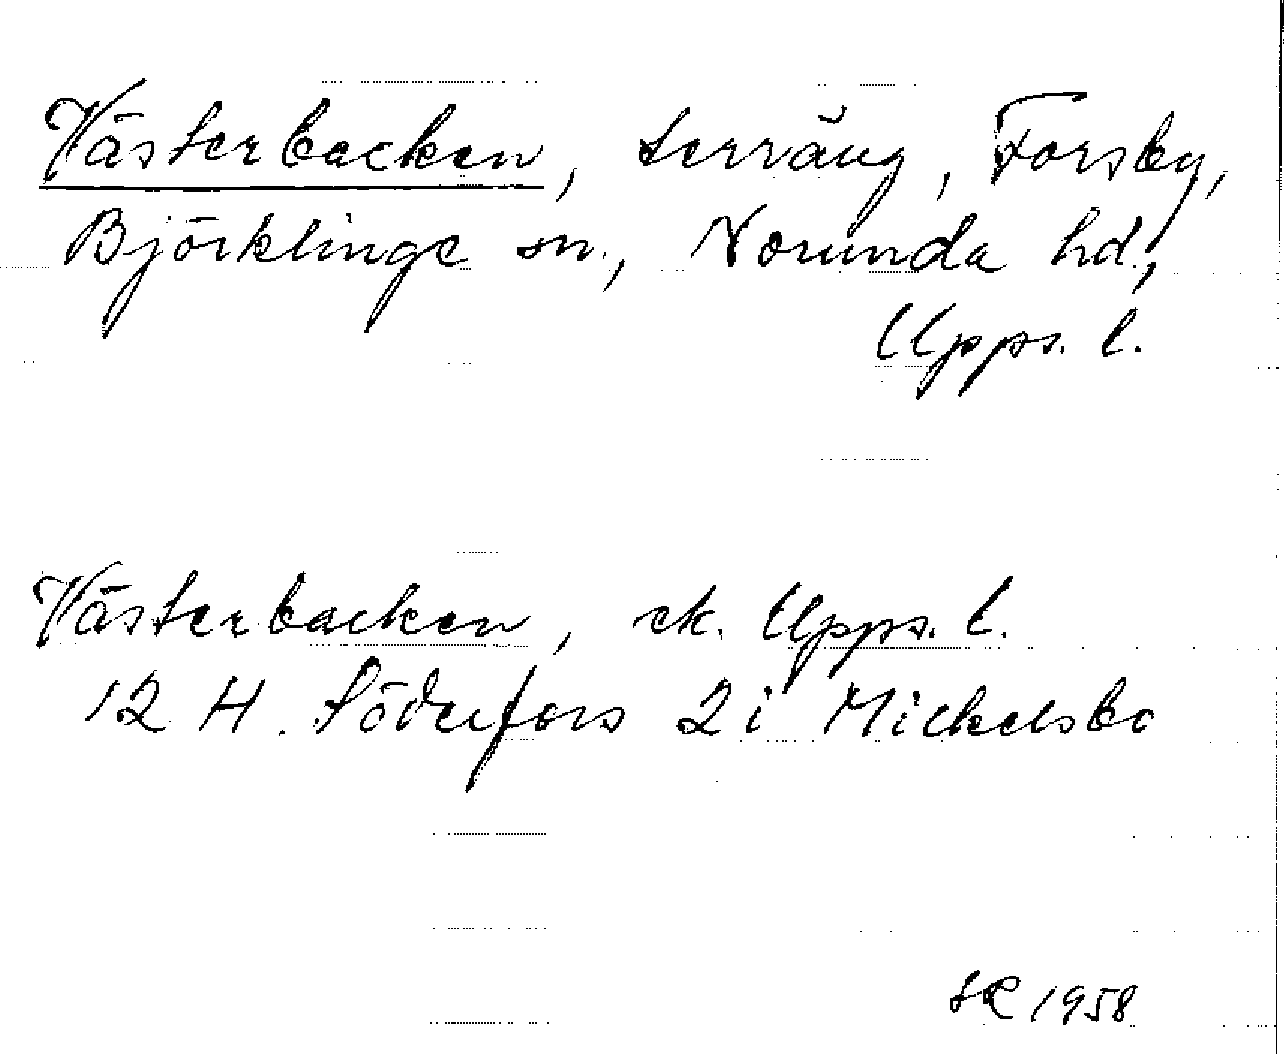 Västerbacken, terräng, Forsby,
Björklinge sn., Norunda hd.,
Upps. l.
Västerbacken, ek. Upps. l.
12 H. Söderfors 2 i Mickelsbo
1958